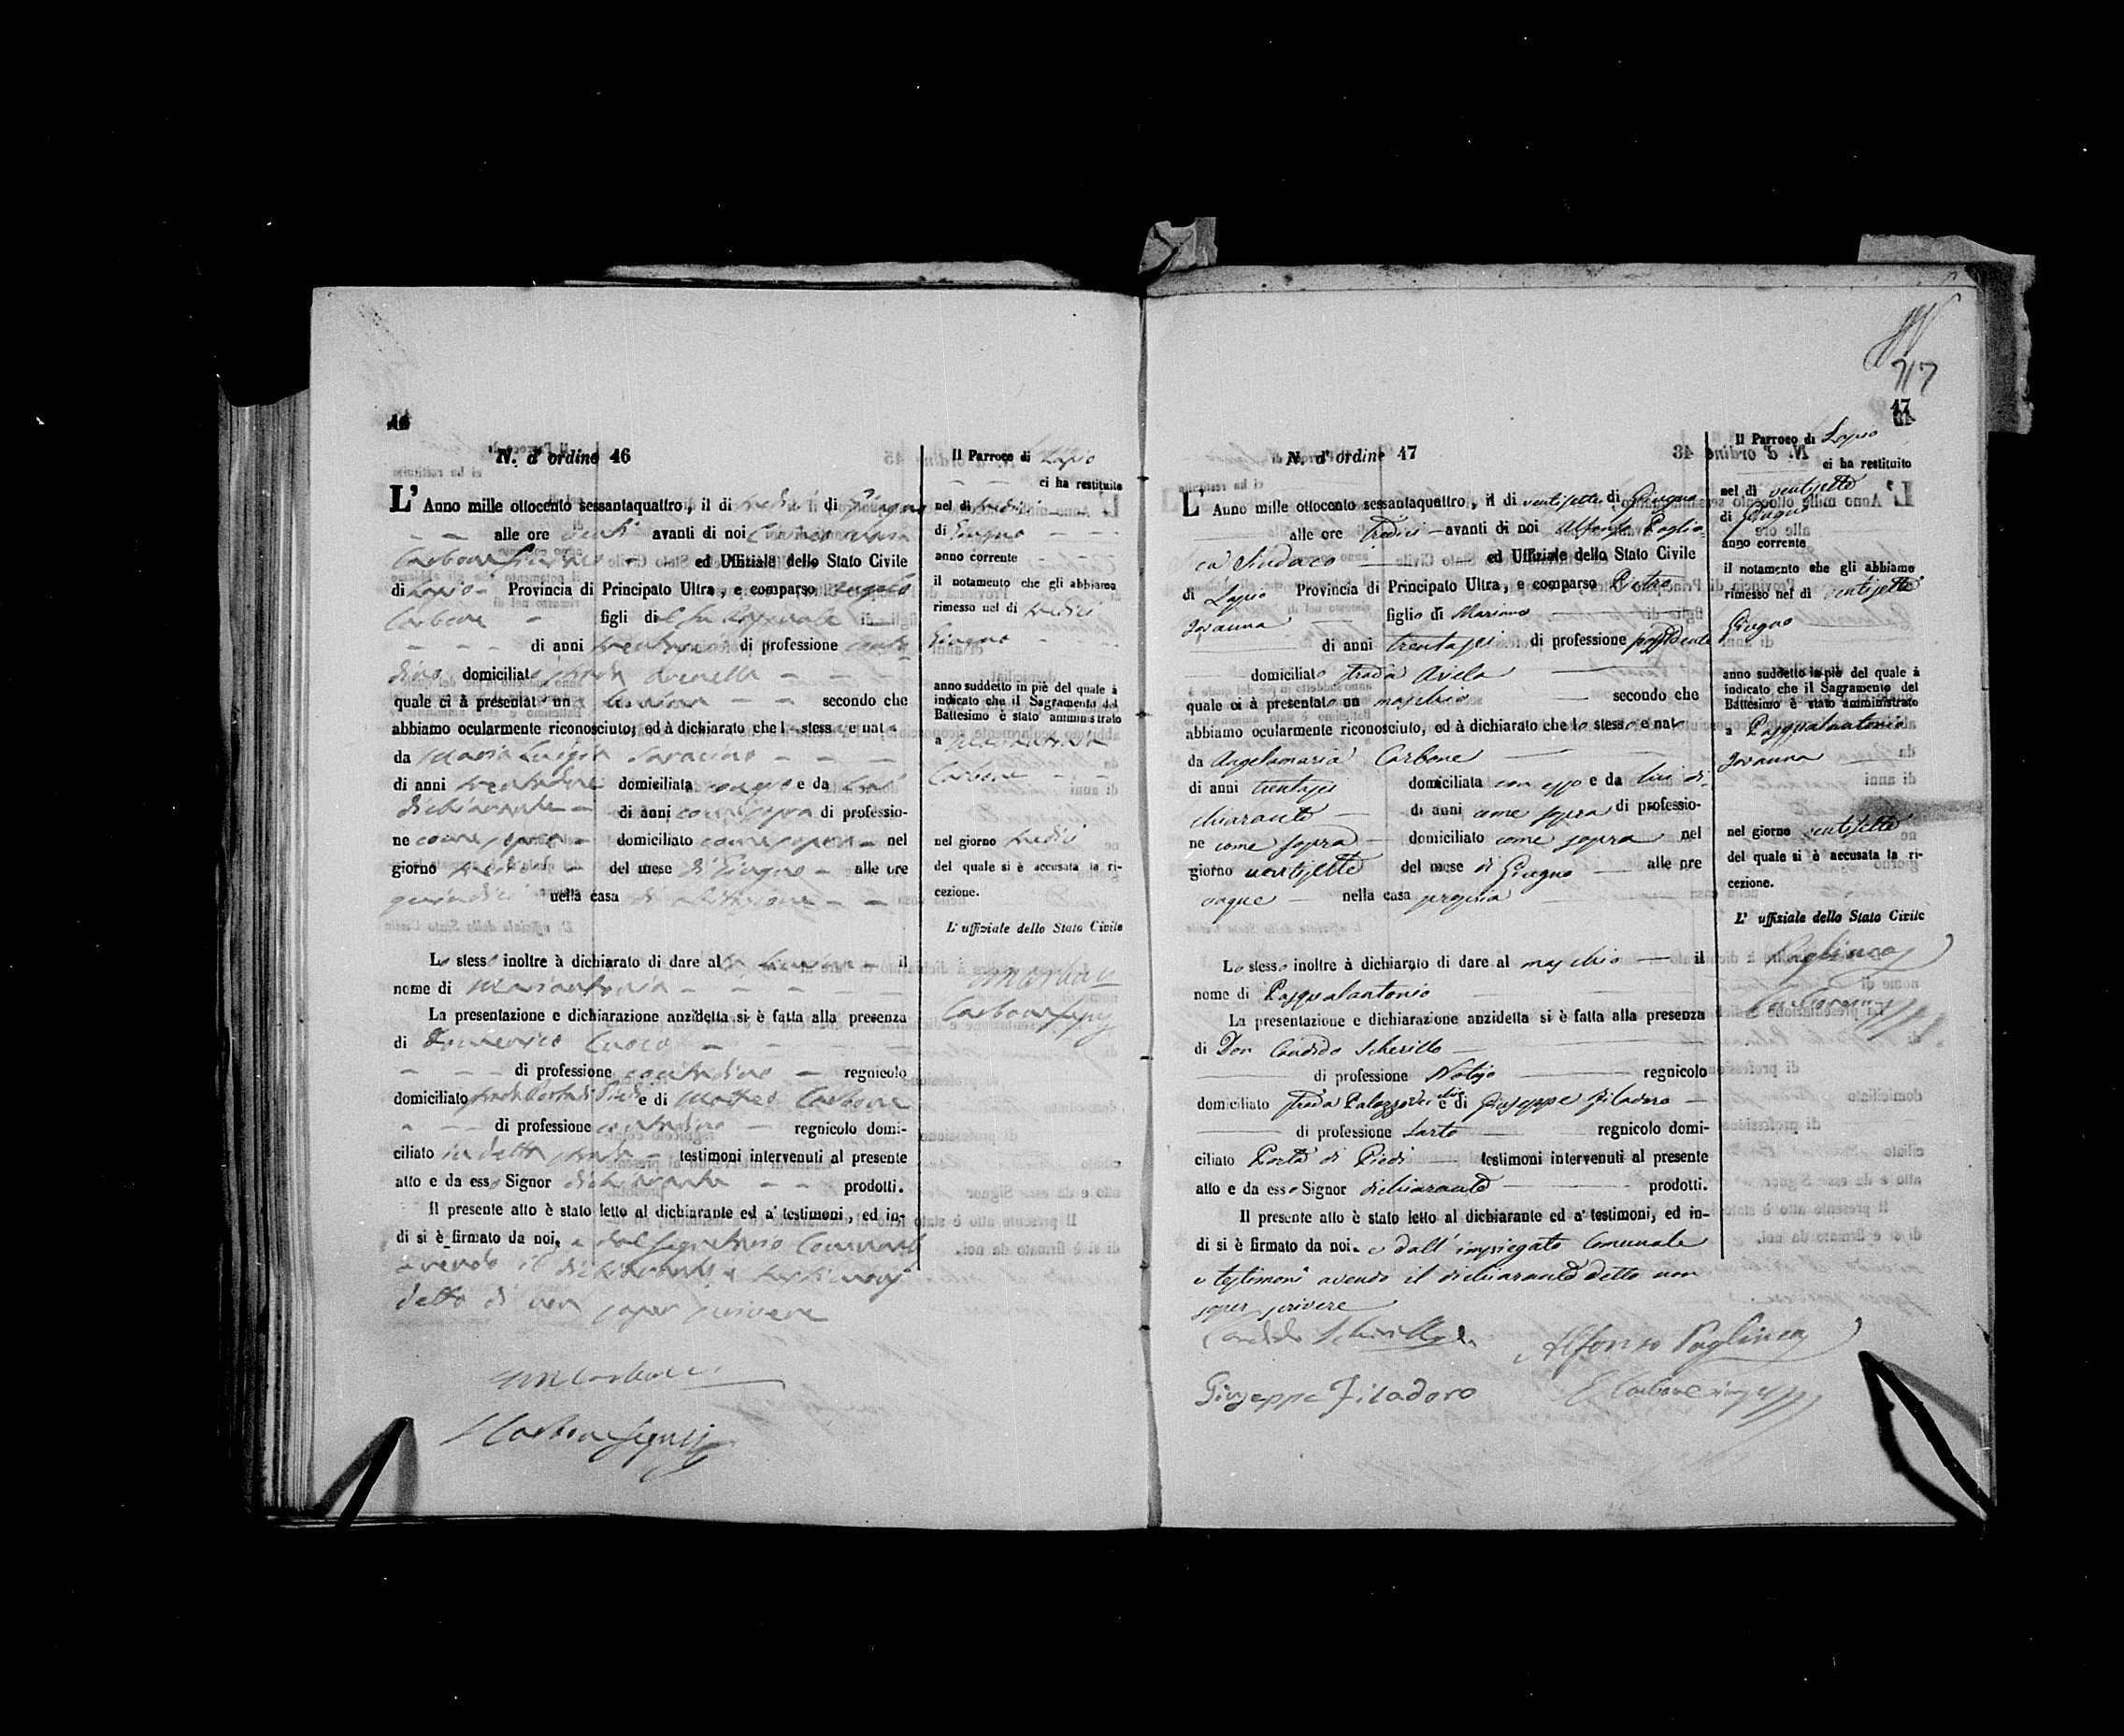 46
N. d' ordine 46
L' Anno mille ottocento sessantaquattro, il di tredici di Giugno
alle ore avanti di noi
Carbone ed Uffiziale dello Stato Civile
di Lapio Provincia di Principato Ultra, e comparso Angelo
Carbone figli di
di anni di professione conta
dino domiciliato strada
quale ci à presentat un secondo che
abbiamo ocularmente riconosciuto; ed à dichiarato che l stess e nat
da Maria Luigia Saracino
di anni domiciliata e da lui
dichiarante di anni come sopra di professio-
ne come sopra domiciliato come sopra nel
giorno tredici del mese di Giugno alle ore
quindici nella casa di abitazione
Lo stesso inoltre à dichiarato di dare al il
nome di Mariantonia
La presentazione e dichiarazione anzidetta si è fatta alla presenza
di Domenico Cuoco
di professione contadino regnicolo
domiciliato strada Porta di Piedi e di Matteo Carbone
di professione contadino regnicolo domi-
ciliato in detta strada testimoni intervenuti al presente
atto e da esso Signor dichiarante prodotti.
Il presente atto è stato letto al dichiarante ed a' testimoni, ed in-
di si è firmato da noi, e dal Segretario Comunale
avendo il dichiarante e testimonj
detto di non saper scrivere
Il Parroco di Lapio
ci ha restituito
nel di tredici
di Giugno
anno corrente
il notamento che gli abbiamo
rimesso nel di tredici
Giugno
anno suddetto in piè del quale à
indicato che il Sagramento del
Battesimo è stato amministrato
a Mariantonia
Carbone
nel giorno tredici
del quale si è accusata la ri-
cezione.
L' uffiziale dello Stato Civile
47
N. d' ordine 47
L' Anno mille ottocento sessantaquattro, il di ventisette di Giugno
alle ore Tredici avanti di noi Alfonso Paglio-
ca Sindaco ed Uffiziale dello Stato Civile
di Lapio Provincia di Principato Ultra, e comparso Pietro
Iovanna figlio di Mariano
di anni trentasei di professione possidente
domiciliato strada Avella
quale ci à presentato un maschio secondo che
abbiamo ocularmente riconosciuto; ed à dichiarato che lo stesso e nato
da Angelamaria Carbone
di anni trentasei domiciliata con esso e da lui di-
chiarante di anni come sopra di professio-
ne come sopra domiciliato come sopra nel
giorno ventisette del mese di Giugno alle ore
nella casa propria
Lo stesso inoltre à dichiarato di dare al maschio il
nome di Pasqualantonio
La presentazione e dichiarazione anzidetta si è fatta alla presenza
di Don Candido Scherillo
di professione Notajo regnicolo
domiciliato strada e di Giuseppe Filadoro
di professione Sarto regnicolo domi-
ciliato Porta di Piedi testimoni intervenuti al presente
atto e da esso Signor dichiarante prodotti.
Il presente atto è stato letto al dichiarante ed a' testimoni, ed in-
di si è firmato da noi. e dall' impiegato Comunale
e testimoni avendo il dichiarante detto non
saper scrivere
Candido Scherillo
Alfonso Paglioca
Giuseppe Filadoro
Il Parroco di Lapio
ci ha restituito
nel di ventisette
di Giugno
anno corrente
il notamento che gli abbiamo
rimesso nel di ventisette
Giugno
anno suddetto in piè del quale à
indicato che il Sagramento del
Battesimo è stato amministrato
a Pasqualantonio
Iovanna
nel giorno ventisette
del quale si è accusata la ri-
cezione.
L' uffiziale dello Stato Civile
Paglioca